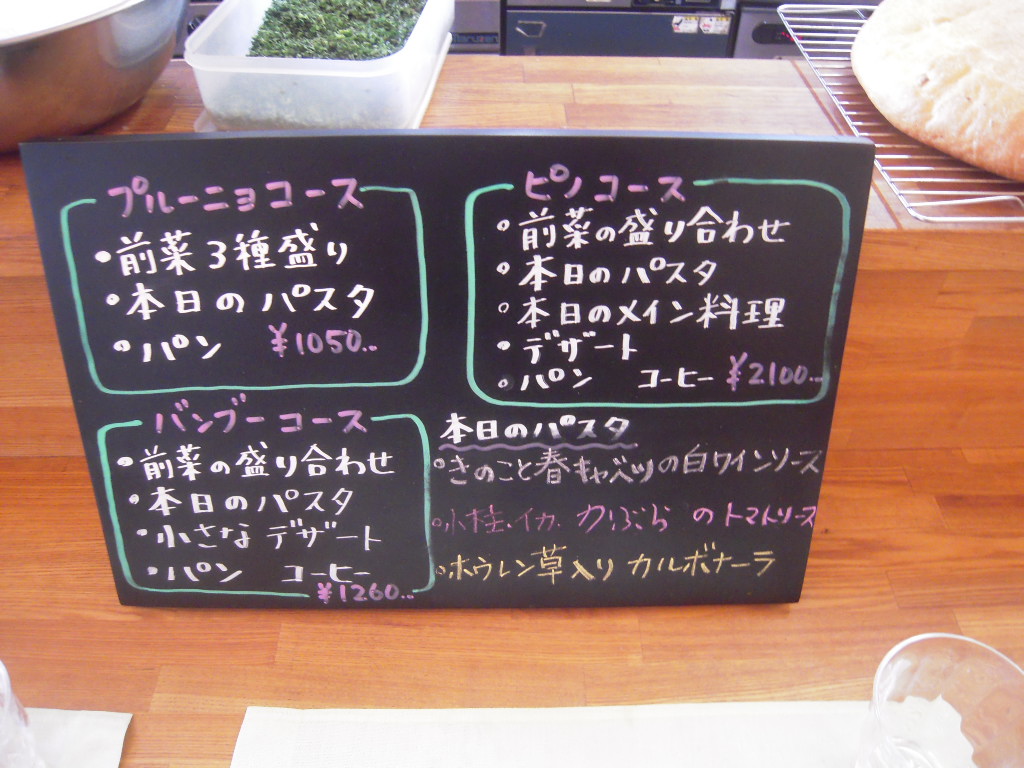 プルーニョコース
・前菜3種盛り
・本日のパスタ
・パン ¥1050..
バンブーコース
・前菜の盛り合わせ
・本日のパスタ
・小さなデザート
・パン コーヒー
¥1260...
ピノコース
・前菜の盛り合わせ
・本日のパスタ
・本日のメイン料理
・デザート
・パン コーヒー ¥2100...
本日のパスタ
・きのこと春キャベツの白ワインソース
・小柱・イカ・かぶらのトマトソース
・ホウレン草入りカルボナーラ